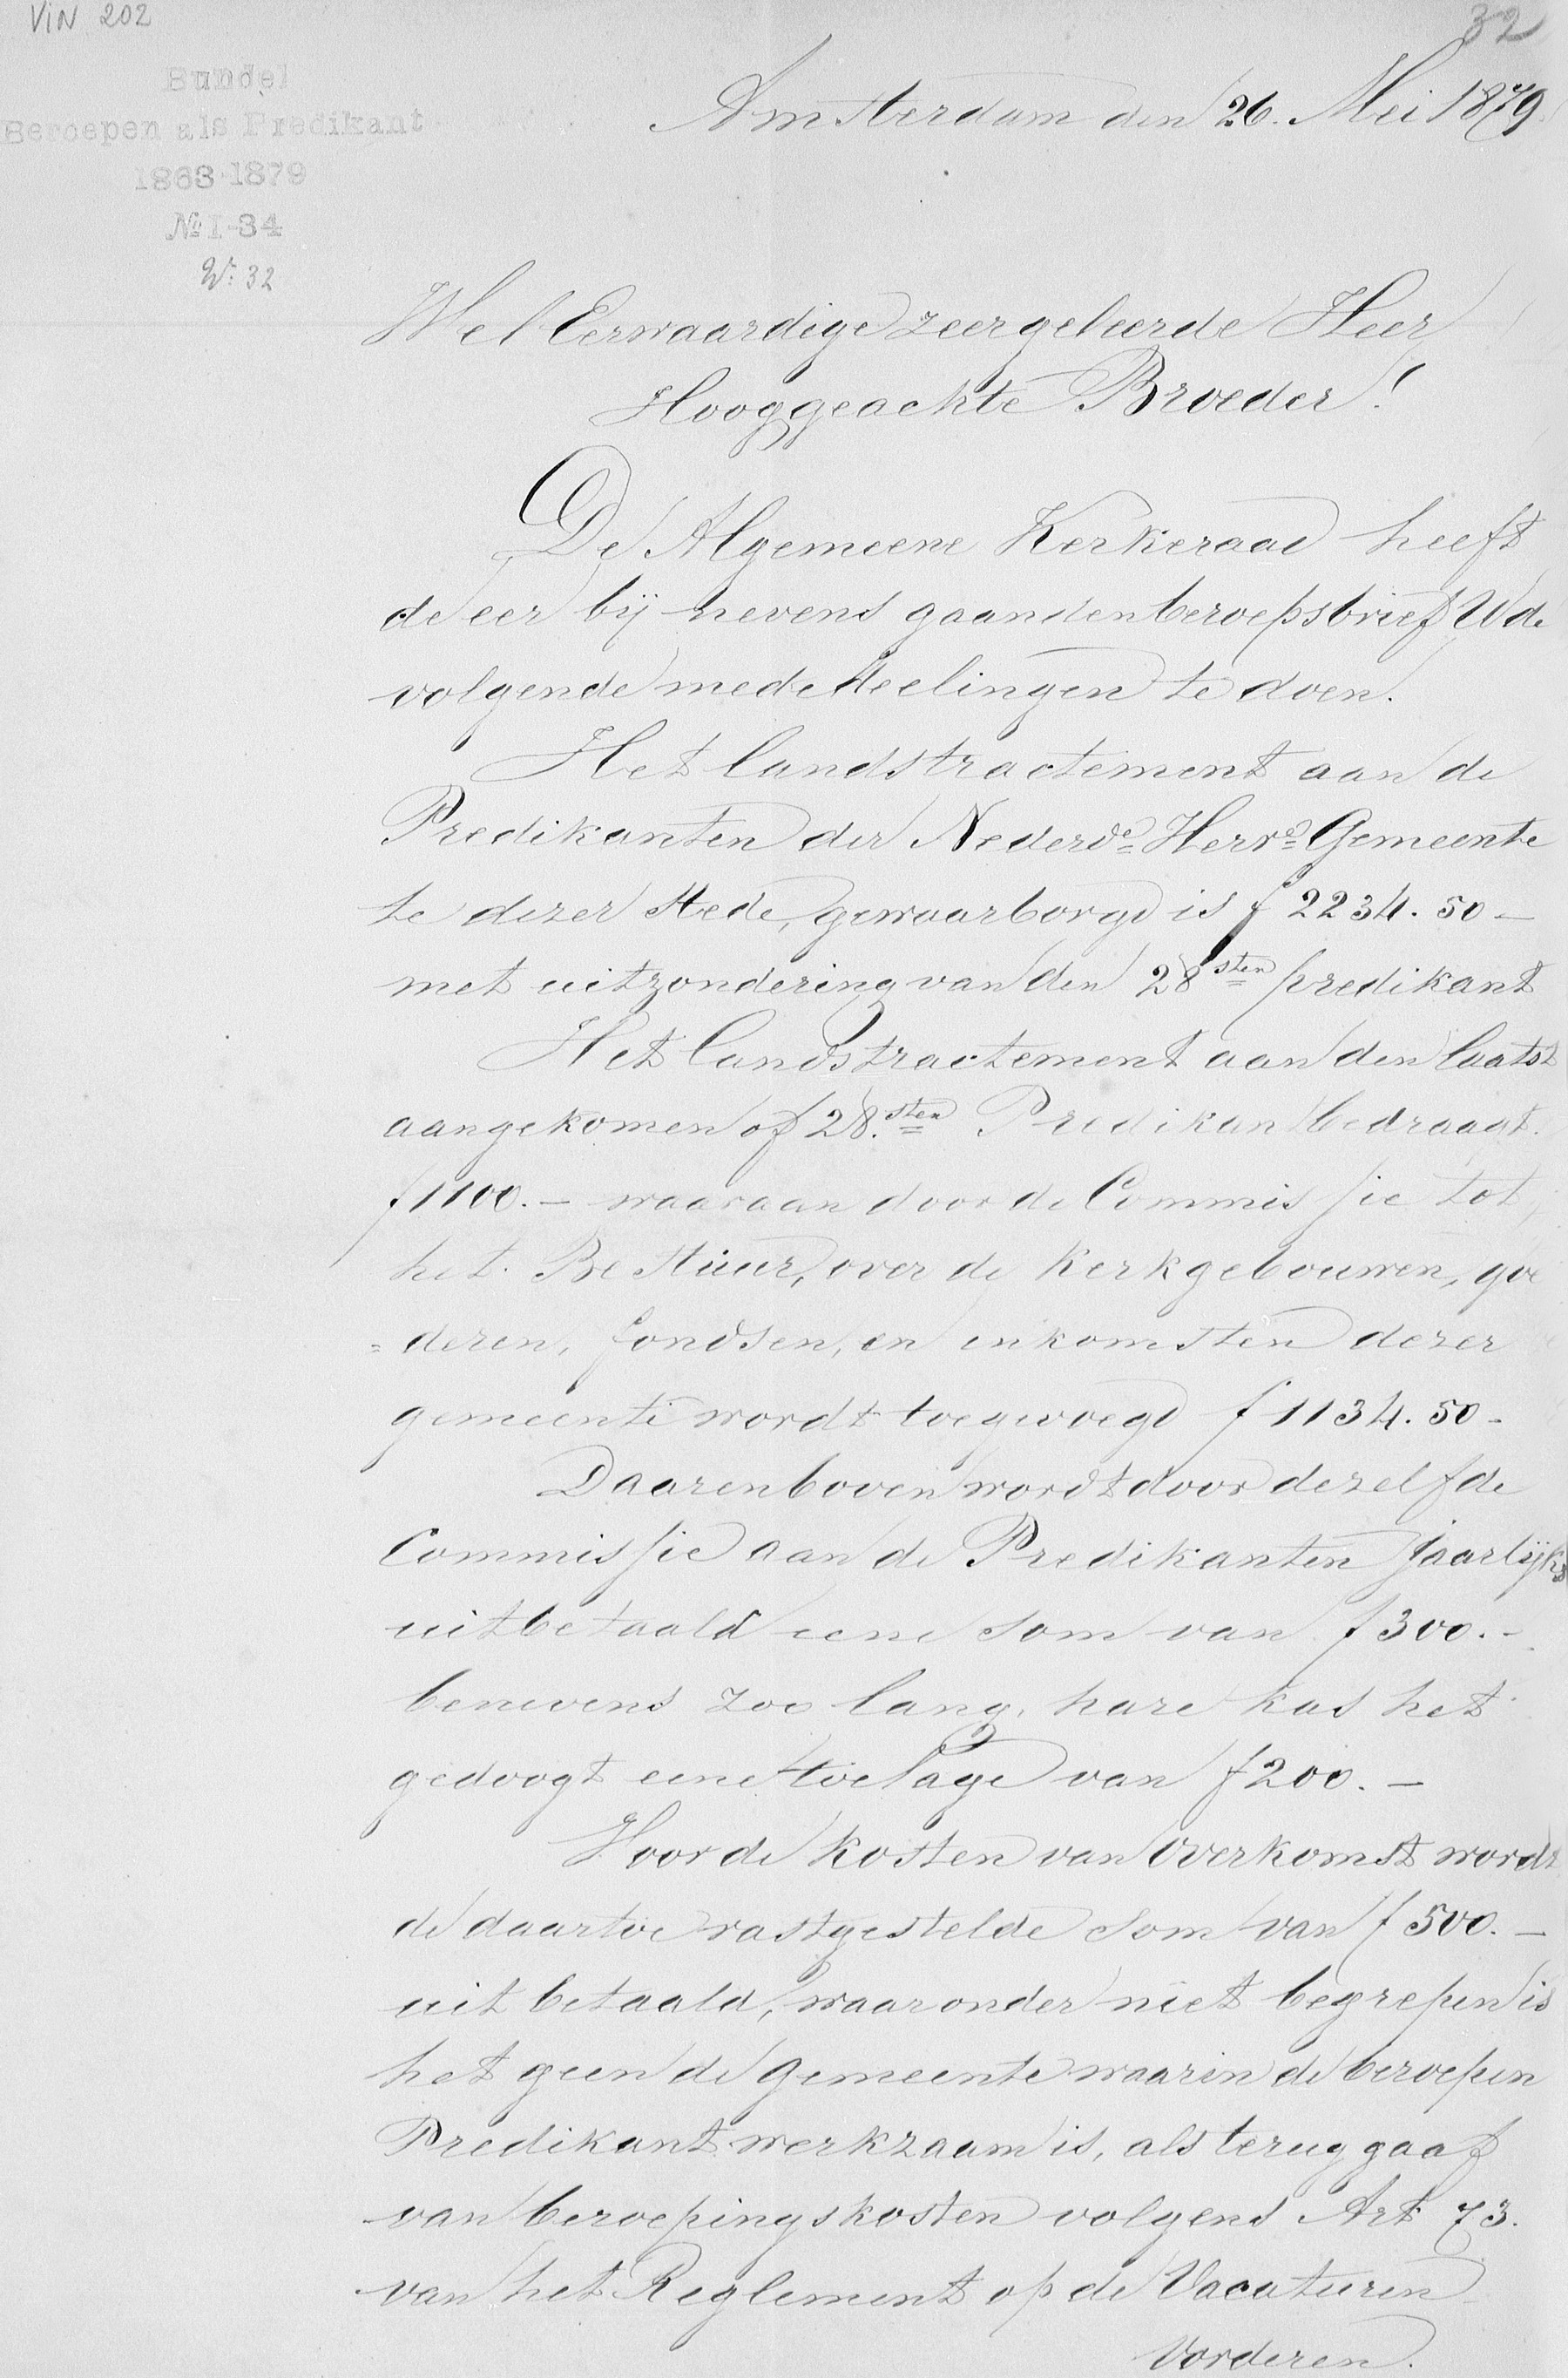 VIN 202
32
Bundel
Beroepen als Predikant
1863-1879
No I-34
No: 32
Amsterdam den 26. Mei 1879.
Wel Eerwaardige zeergeleerde Heer
Hooggeachte Broeder!
De Algemeene Kerkeraad heeft
de eer bij nevens gaanden beroepsbrief U de
volgende mededeelingen te doen.
Het landstractement aan de
Predikanten der Nederde Herve Gemeente
te dezer stede, gewaarborgd is f 2234.50 –
met uitzondering van den 28sten predikant
Het landstractement aan den laatst
aangekomen of 28.sten Predikan bedraagt.
f 1100. – waaraan door de Commissie tot
het Bestuur, over de Kerkgebouwen, goe
= deren, fondsen, en inkomsten dezer
gemeente wordt toegevoegd f 1134.50 –
Daarenboven wordt door dezelfde
Commissie aan de Predikanten jaarlijks
uitbetaald eene som van f 300. –
benevens zoo lang, hare kas het
gedoogt eene toelage van f 200. –
Voor de kosten van overkomst wordt
de daartoe vastgestelde som van f 500. –
uit betaald, waaronder niet begrepen is
het geen de Gemeente waarin de beroepen
Predikant werkzaam is, als teruggaaf
van beroepingskosten volgens Art 73.
van het Reglement op de Vacaturen
Vorderen.